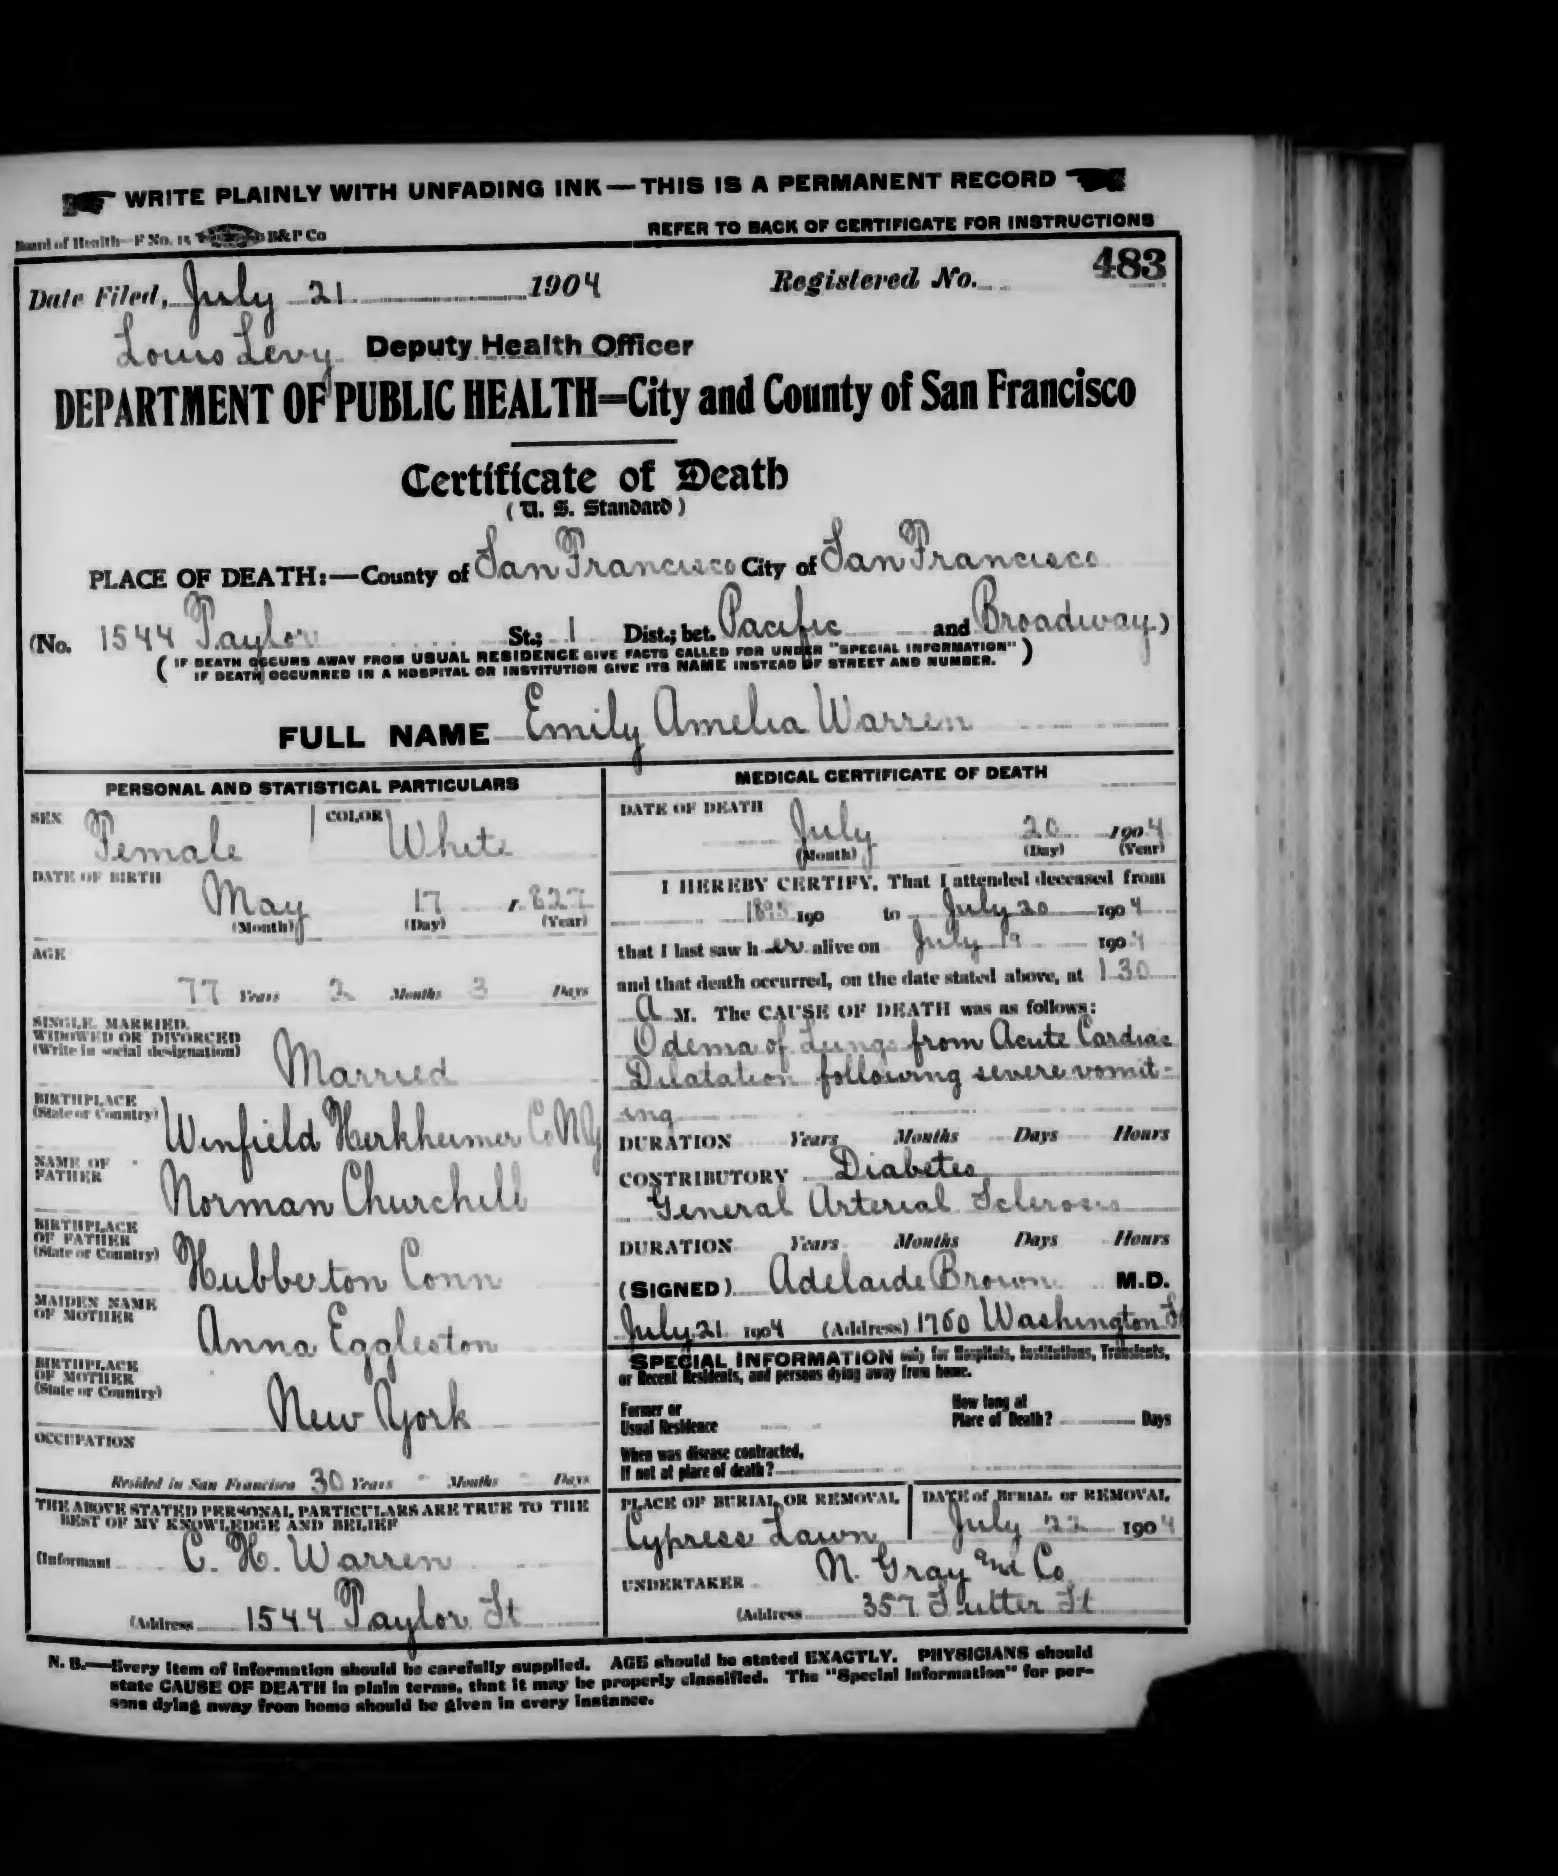 WRITE PLAINLY WITH UNFADING INK—THIS IS A PERMANENT RECORD
Board of Health—F No. 15 B&P Co
REFER TO BACK OF CERTIFICATE FOR INSTRUCTIONS
Date Filed, July 21 1904 Registered No. 483
Louis Levy Deputy Health Officer
DEPARTMENT OF PUBLIC HEALTH=City and County of San Francisco
Certificate of Death
(U. S. Standard)
PLACE OF DEATH:—County of San Francisco City of San Francisco
(No. 1544 Taylor St.; 1 Dist.; bet. Pacific and Broadway)
(IF DEATH OCCURS AWAY FROM USUAL RESIDENCE GIVE FACTS CALLED FOR UNDER "SPECIAL INFORMATION"
IF DEATH OCCURRED IN A HOSPITAL OR INSTITUTION GIVE ITS NAME INSTEAD OF STREET AND NUMBER.)
FULL NAME Emily Amelia Warren
PERSONAL AND STATISTICAL PARTICULARS
SEX Female COLOR White
DATE OF BIRTH
May 17 1827
(Month) (Day) (Year)
AGE
77 Years 2 Months 3 Days
SINGLE, MARRIED,
WIDOWED OR DIVORCED
(Write in social designation)
Married
BIRTHPLACE
(State or Country)
Winfield Herkheimer Co NY
NAME OF
FATHER
Norman Churchill
BIRTHPLACE
OF FATHER
(State or Country)
Hubberton Conn
MAIDEN NAME
OF MOTHER
Anna Eggleston
BIRTHPLACE
OF MOTHER
(State or Country)
New York
OCCUPATION
Resided in San Francisco 30 Years - Months - Days
THE ABOVE STATED PERSONAL PARTICULARS ARE TRUE TO THE
BEST OF MY KNOWLEDGE AND BELIEF
(Informant C. H. Warren
(Address 1544 Taylor St
MEDICAL CERTIFICATE OF DEATH
DATE OF DEATH
July 20 1904
(Month) (Day) (Year)
I HEREBY CERTIFY, That I attended deceased from
190 to July 20 1904
that I last saw her alive on July 19 1904
and that death occurred, on the date stated above, at 1 30
A M. The CAUSE OF DEATH was as follows:
Odema of Lungs from Acute Cardiac
Dilatation following severe vomit-
ing
DURATION Years Months Days Hours
CONTRIBUTORY Diabetes
General Arterial Sclerosis
DURATION Years Months Days Hours
(SIGNED) Adelaide Brown M.D.
July 21 1904 (Address) 1760 Washington St
SPECIAL INFORMATION only for Hospitals, Institutions, Transients,
or Recent Residents, and persons dying away from home.
Former or
Usual Residence
How long at
Place of Death? Days
When was disease contracted,
If not at place of death?
PLACE OF BURIAL OR REMOVAL
Cypress Lawn
DATE of BURIAL or REMOVAL
July 22 1904
UNDERTAKER N. Gray and Co
(Address 357 Sutter St
N. B.—Every item of information should be carefully supplied. AGE should be stated EXACTLY. PHYSICIANS should
state CAUSE OF DEATH in plain terms, that it may be properly classified. The "Special Information" for per-
sons dying away from home should be given in every instance.